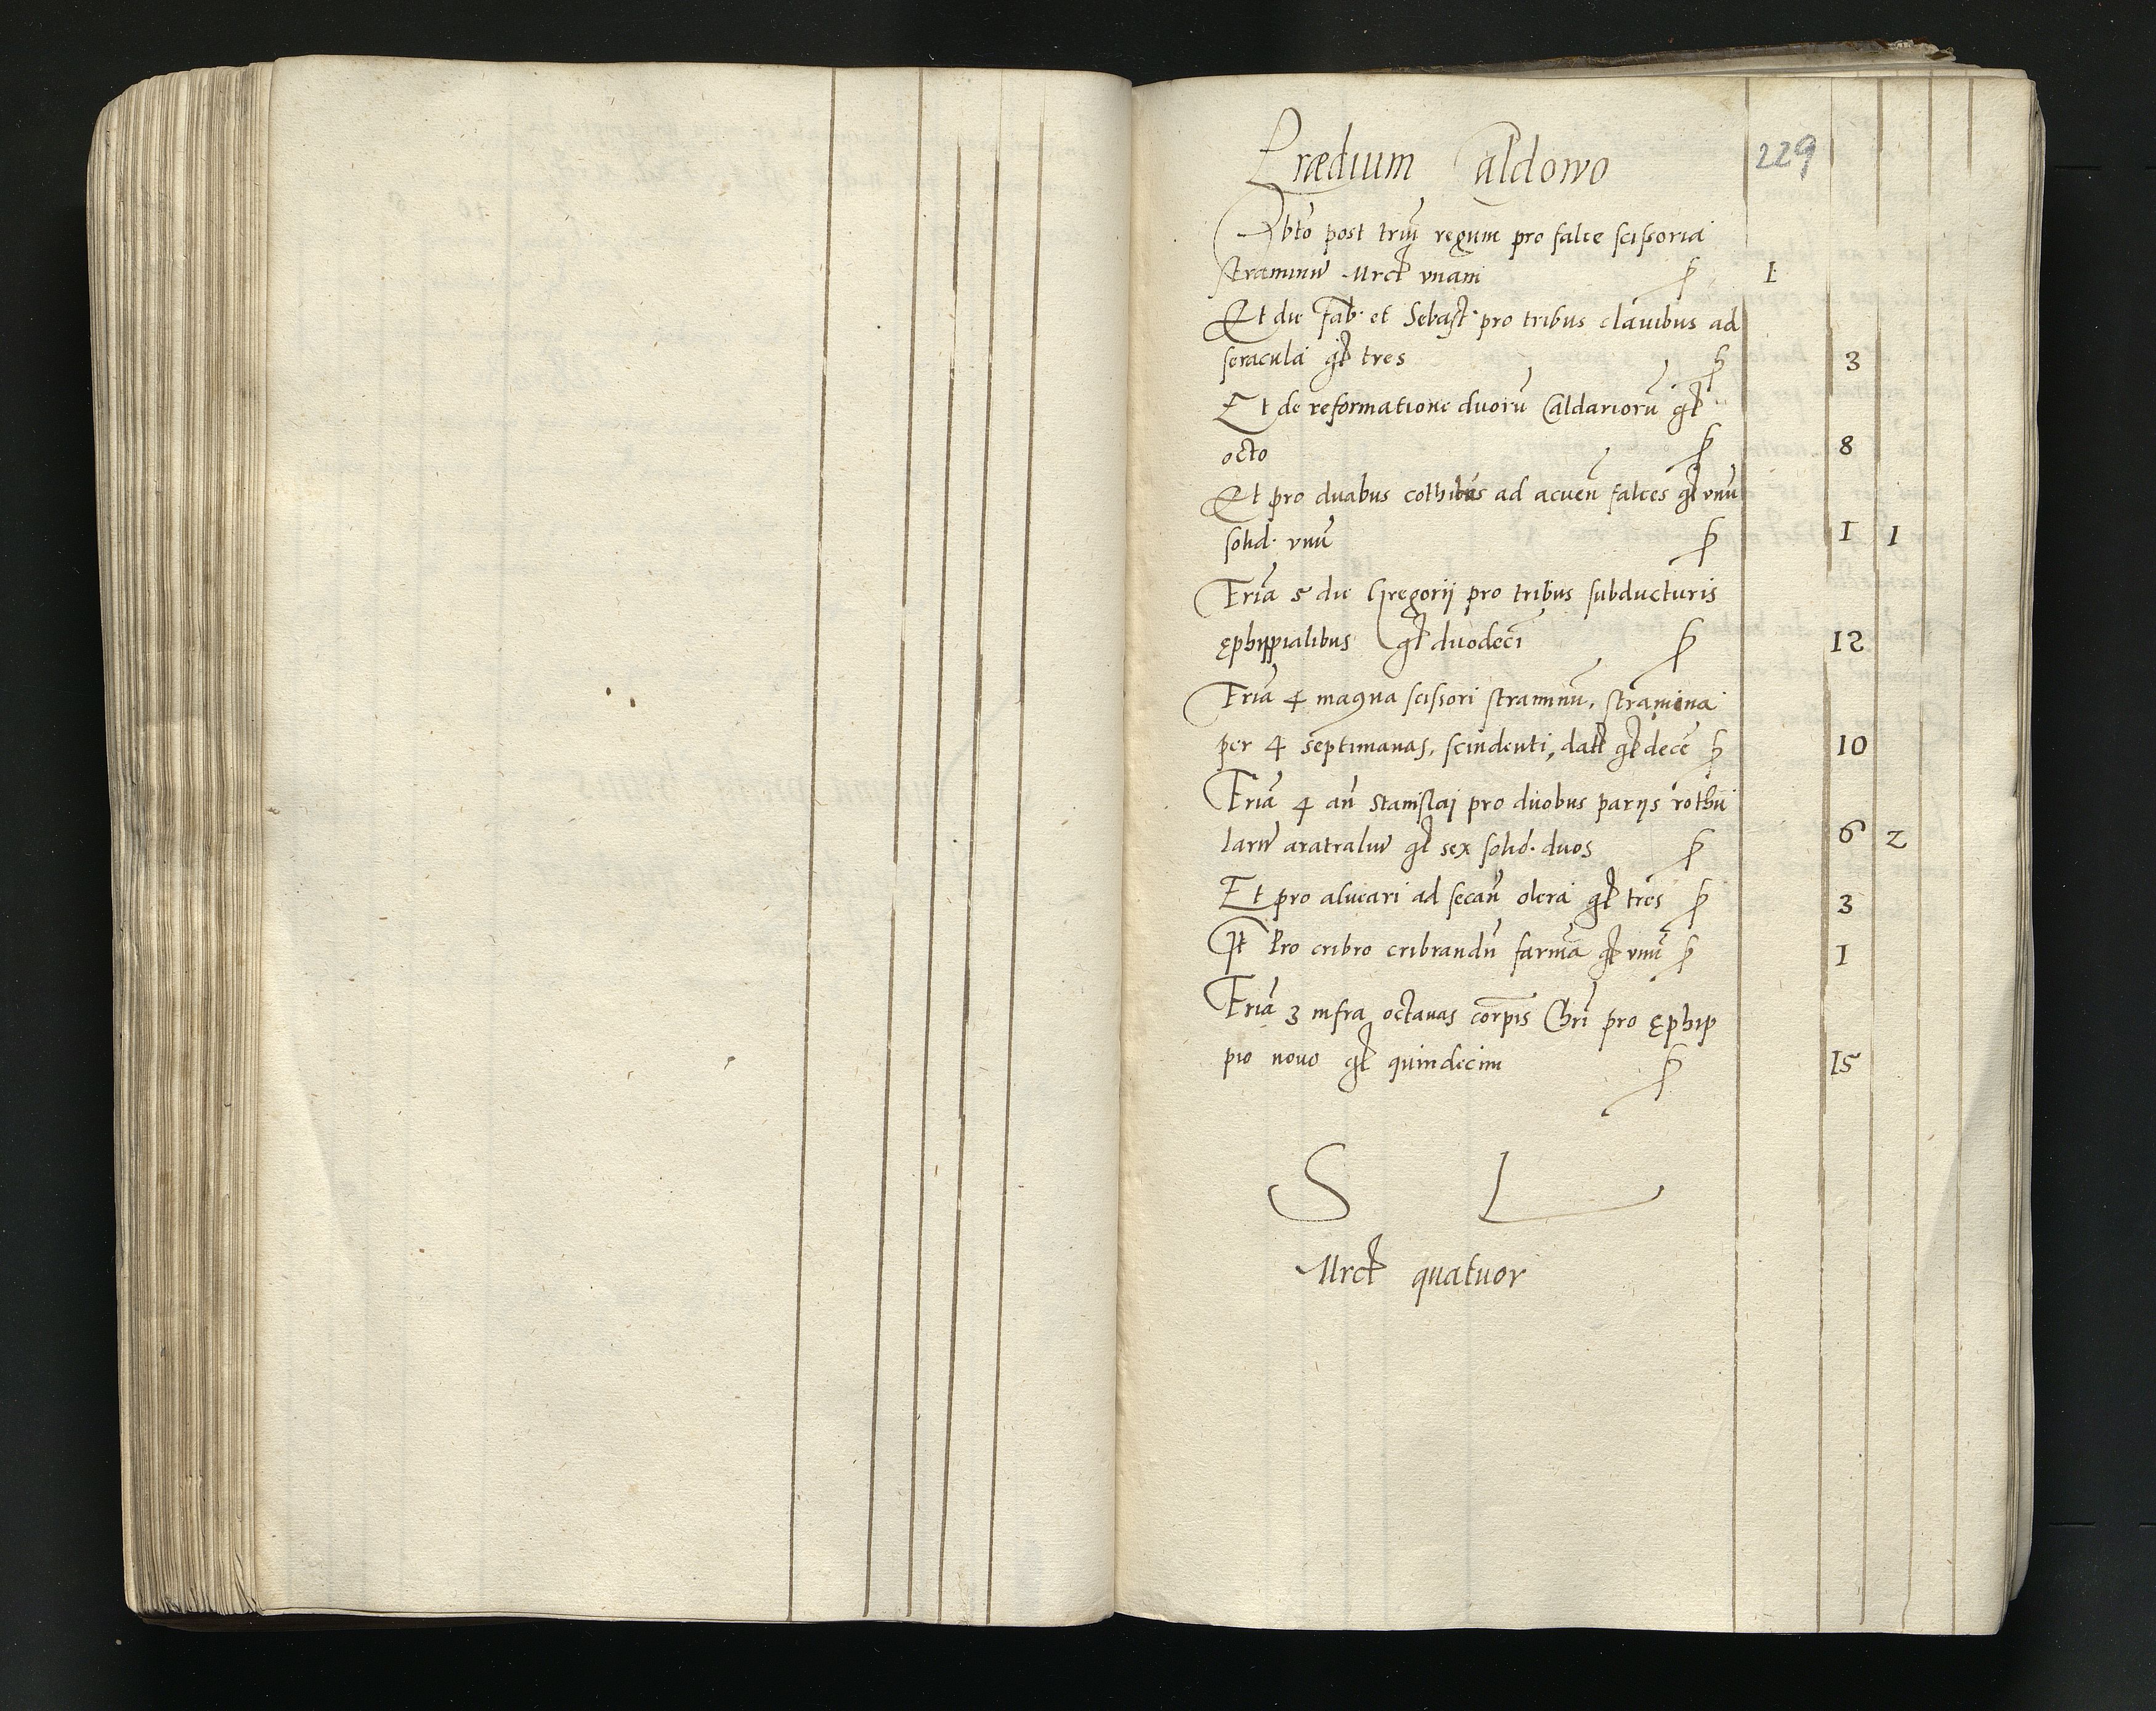 Prædium Caldowo 229
Sbto post triu regum pro falce scissoria
straminu Mrct vnam p 1
Et die Fab. et Sebast. pro tribus clauibus ad
seracula gl tres p 3
Et de reformatione duoru Caldarioru gl
octo p 8
Et pro duabus cothibus ad acuen falces gl vnu
solid. vnu p 1 1
Feria 5 die Gregorij pro tribus subducturis
ephippialibus gl duodeci p 12
Feria 4 magna scissori straminu, stramina
per 4 septimanas, scindenti, datt gl dece p 10
Feria 4 an Stanislaj pro duobus parijs rothu
laru aratraliu gl sex solid. duos p 6 2
Et pro alueari ad secan olera gl tres p 3
It Pro cribro cribrandn farina gl vnu p 1
Feria 3 infra octauas corpis Chri pro ephip
pio nouo gl quindecim p 15
S L
Mrct quatuor